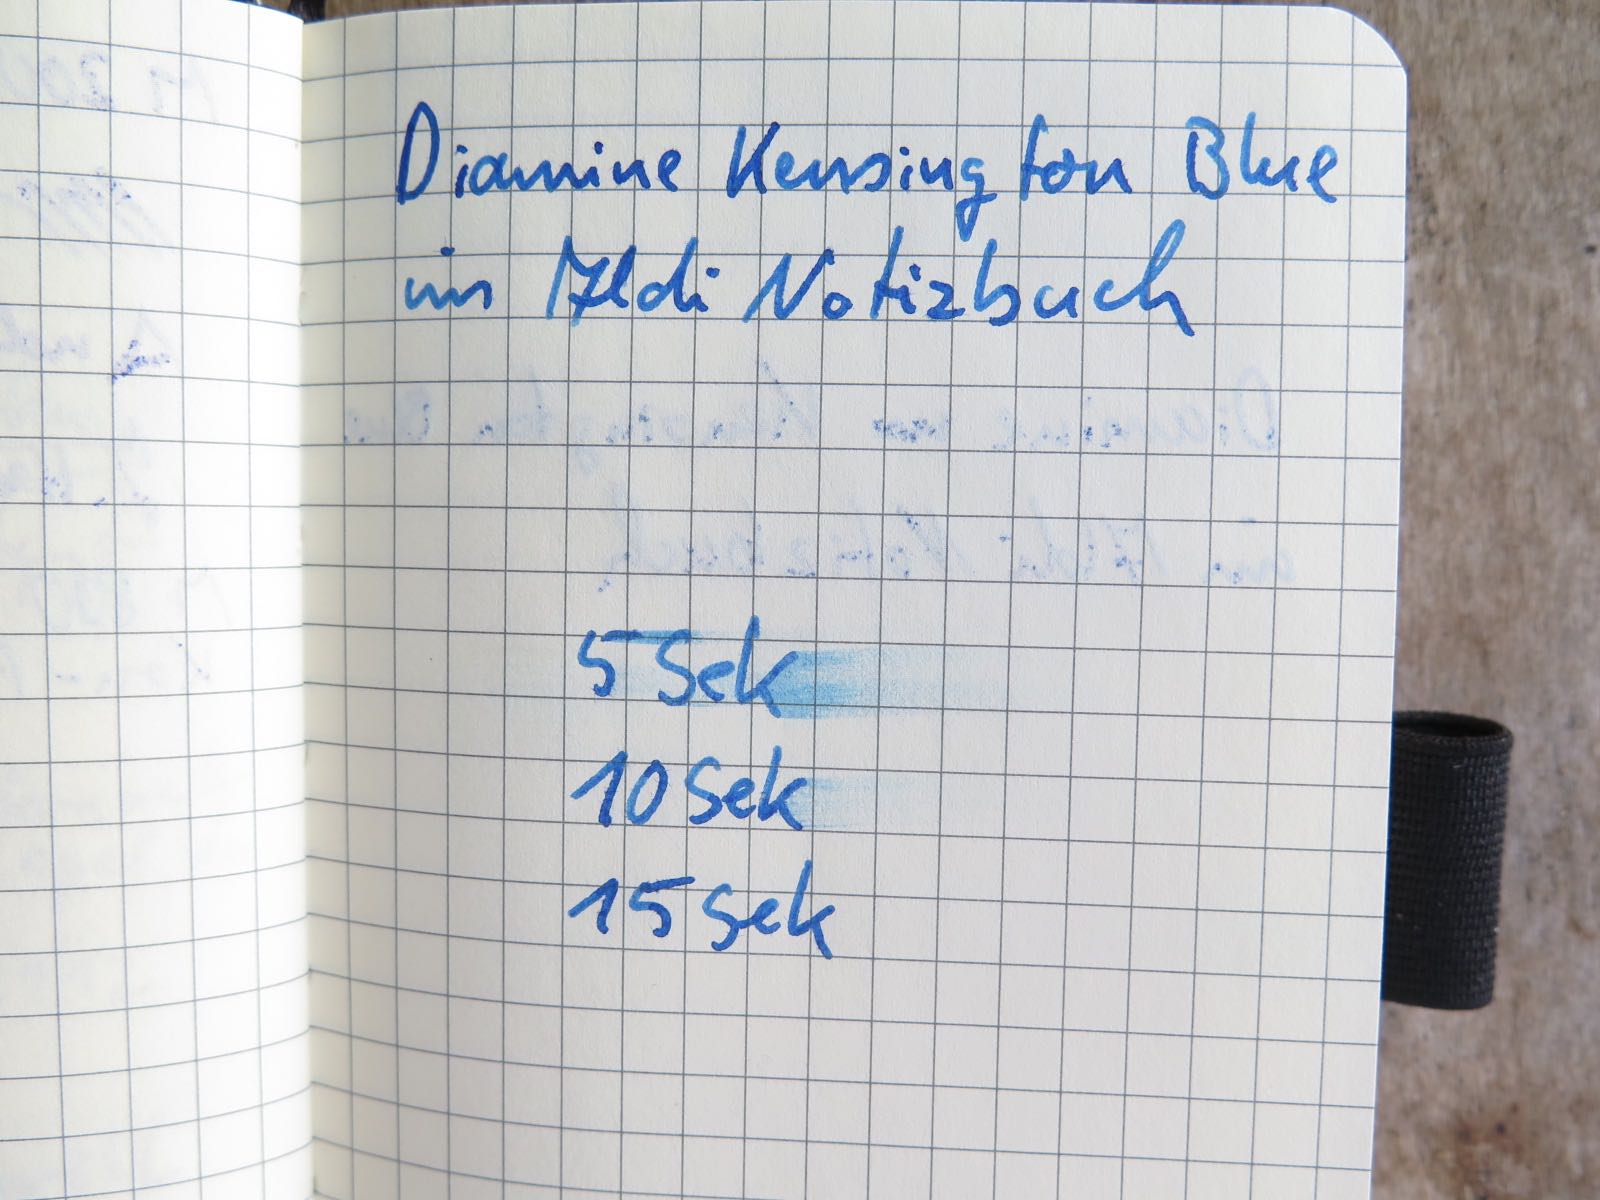 Diamine Kensington Blue
im Aldi Notizbuch
5 Sek
10 Sek
15 Sek